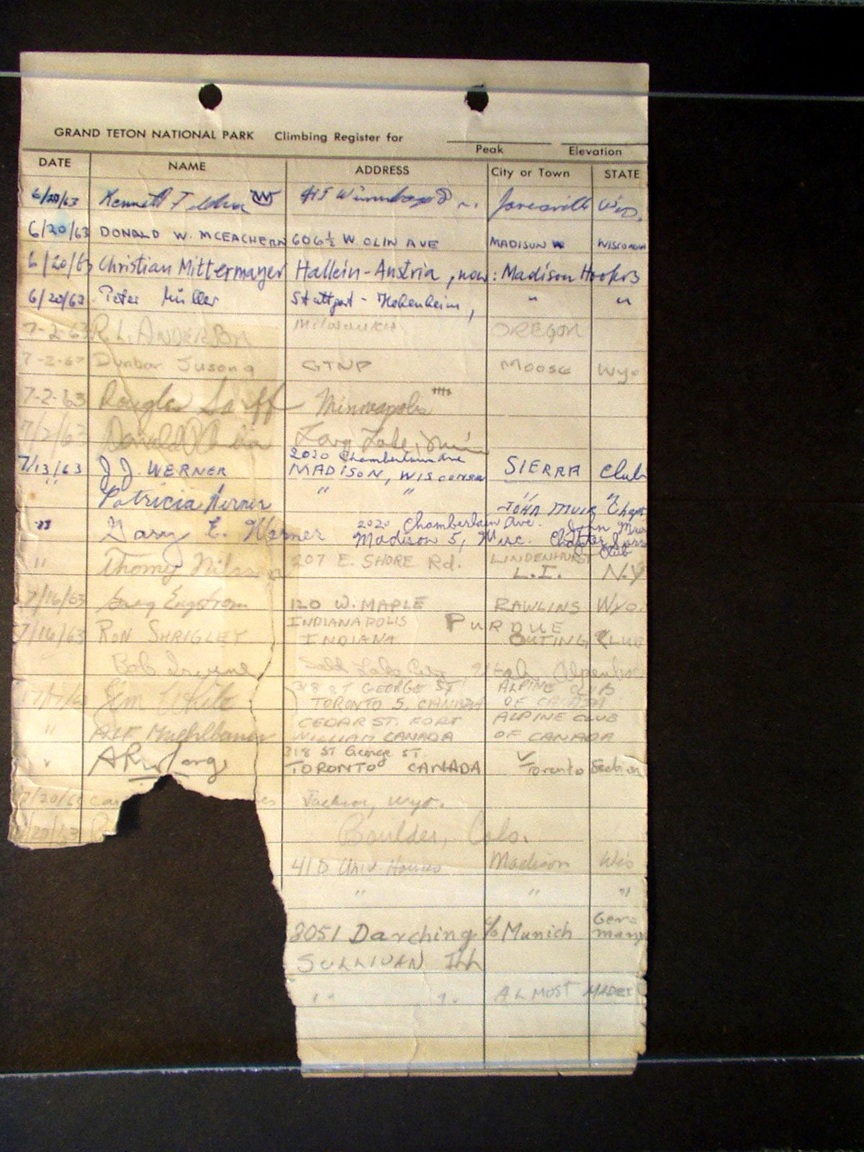 GRAND TETON NATIONAL PARK Climbing Register for
Peak Elevation
DATE NAME ADDRESS City or Town STATE
6/20/63 Kenneth W Janesville Wis.
6/20/63 DONALD W. MCEACHERN 606½ W. OLIN AVE MADISON WISCONSIN
6/20/63 Christian Mittermayer Hallein-Austria, now: Madison Hoofers
6/20/63 Peter Müller Stuttgart - Hohenheim, " "
7-2-63 R.L. ANDERSON MILWAUKIE OREGON
7-2-63 Dunbar Susong GTNP Moose Wyo
7-2-63 Douglas Minneapolis
7/2/63 Donald
2020 Chamberlain Ave
7/13/63 J.J. WERNER MADISON, WISCONSIN SIERRA Club
" Patricia Werner " " JOHN MUIR Chapt
" Gary E. Werner 2020 Chamberlain Ave. John Muir
Madison 5, Wisc. Chapter Sierra
Club
" Thomas 207 E. SHORE Rd. LINDENHURST
L.I. N.Y
7/16/63 Greg Engstrom 120 W. MAPLE RAWLINS Wyo.
7/16/63 RON SHRIGLEY INDIANAPOLIS INDIANA PURDUE OUTING CLUB
Bob Irvine Salt Lake City Utah
Jim White 318 ST GEORGE ST ALPINE CLUB
TORONTO 5, CANADA OF CANADA
" ALF Muehlbauer CEDAR ST. FORT ALPINE CLUB
WILLIAM CANADA OF CANADA
318 ST George ST.
" TORONTO CANADA Toronto Section
7/20/63 Jackson, Wyo.
7/20/63 Boulder, Colo.
41D Univ. Houses Madison Wis
" " "
8051 Darching c/o Munich Ger-
many
SULLIVAN Ill
" " ALMOST